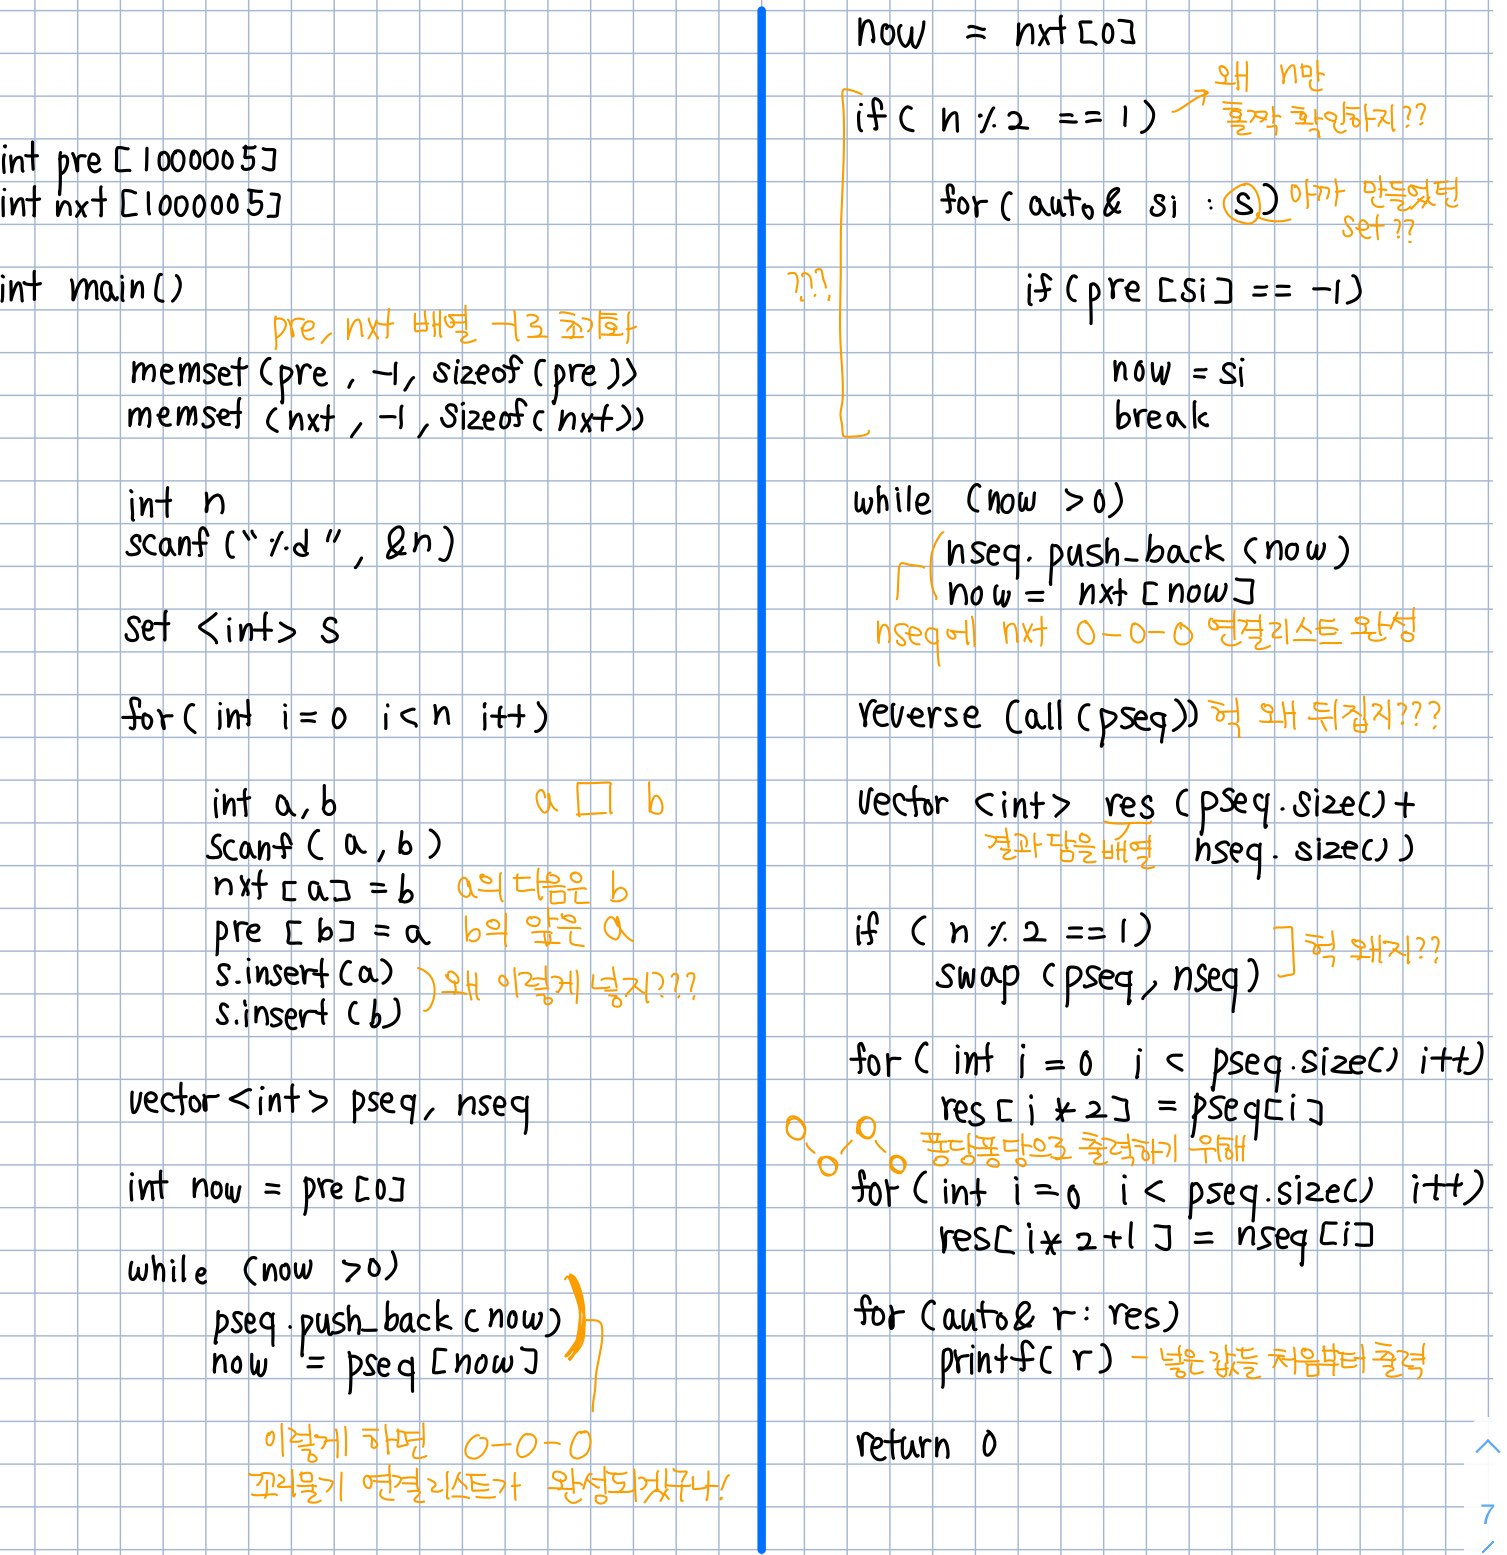 int pre [1000005]
int nxt [1000005]
int main()
pre, nxt 배열 -1로 초기화
memset (pre , -1, sizeof (pre))
memset (nxt , -1 , sizeof (nxt))
int n
scanf ("%d", &n)
set <int> s
for( int i = 0 i < n i++)
int a, b a □ b
scanf ( a , b )
nxt [a] = b a의 다음은 b
pre [b] = a b의 앞은 a
s.insert (a)
s.insert (b)
왜 이렇게 넣지???
vector <int> pseq, nseq
int now = pre [0]
while (now >0)
pseq.push_back (now)
now = pseq [now]
이렇게 하면 O-O-O
꼬리물기 연결리스트가 완성되겠구나!
now = nxt [0]
if ( n % 2 == 1) 왜 n만
홀짝 확인하지??
for ( auto& si : s) 아까 만들었던
set??
???
if (pre [si] == -1)
now = si
break
while (now >0)
nseq. push_back (now)
now = nxt [now]
nseq에 nxt O-O-O 연결리스트 완성
reverse (all (pseq)) 헉 왜 뒤집지???
vector <int> res (pseq.size() +
결과 담을 배열 nseq. size())
if ( n % 2 == 1)
swap (pseq, nseq)
헉 왜지??
for ( int i = 0 i < pseq.size() i++)
res [ i * 2] = pseq[i]
퐁당퐁당으로 출력하기 위해
for ( int i = 0 i < pseq.size() i++)
res[ i * 2+1 ] = nseq [i]
for (auto& r : res)
printf( r ) - 넣은 값들 처음부터 출력
return 0
7